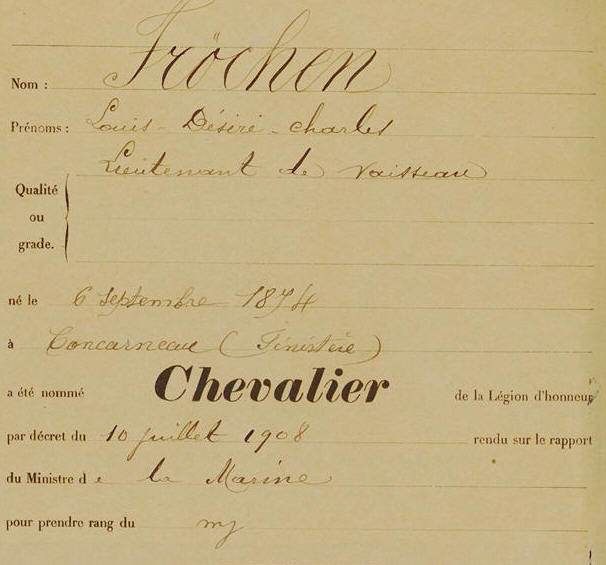 Nom : Fröchen
Prénoms : Louis - Désiré - Charles
Lieutenant de Vaisseau
Qualité
ou
grade.
né le 6 Septembre 1874
à Concarneau (Finistère)
a été nommé Chevalier de la Légion d'honneur
par décret du 10 juillet 1908 rendu sur le rapport
du Ministre de la Marine
pour prendre rang du